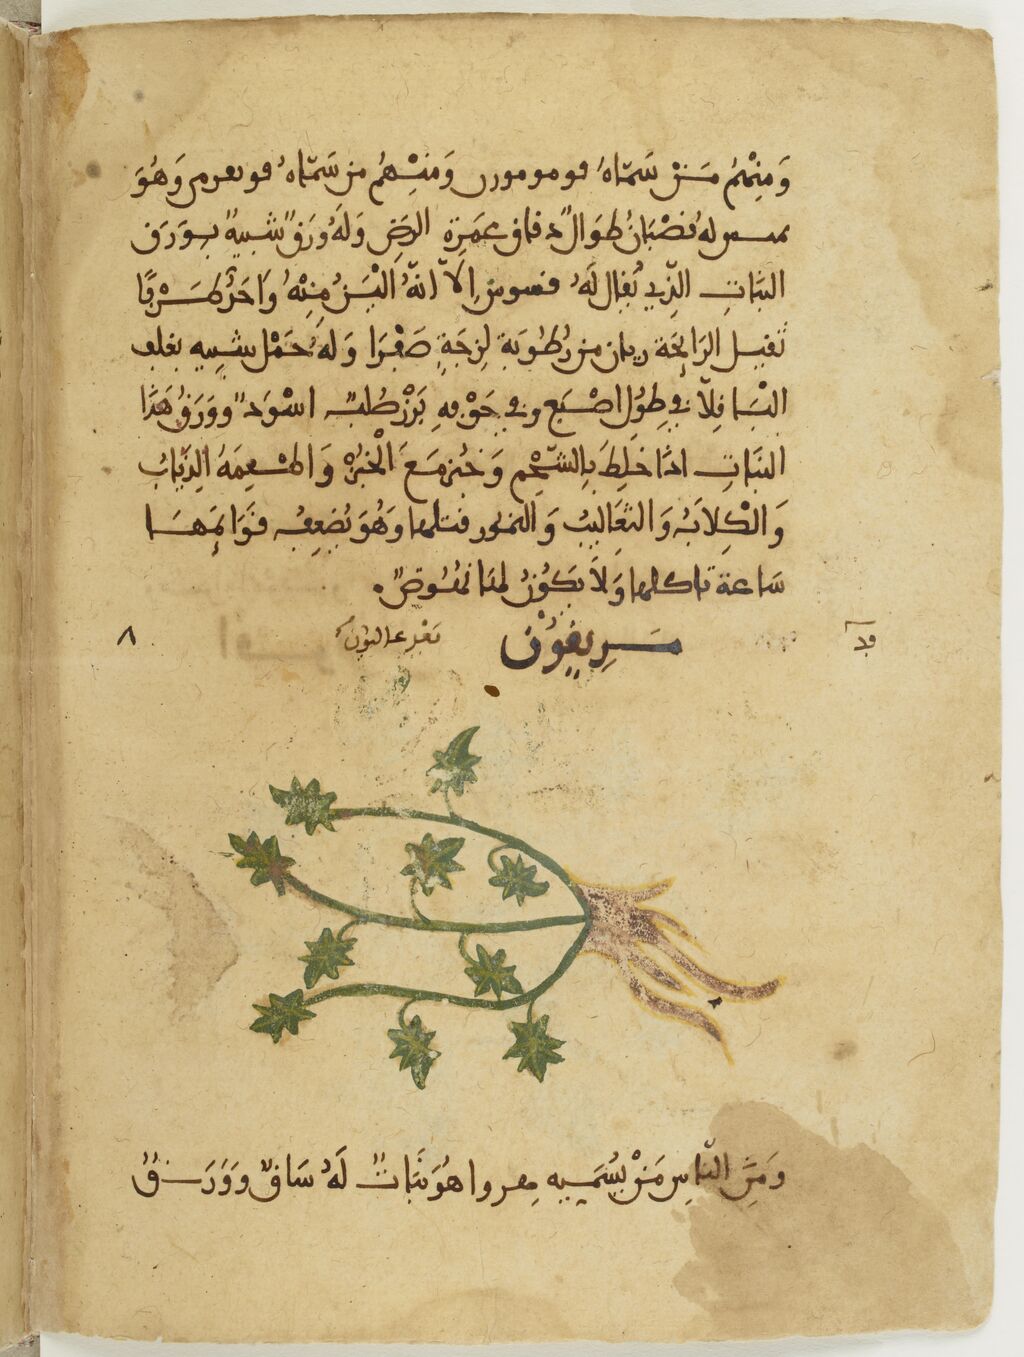 وَمِنْهُمْ مَنْ سَمَّاهُ فومومورن وَمِنْهُمْ من سَمَّاهُ وَهُوَ
له قُضْبَانٌ طوَالٌ دقاق عَسِرَةِ الرَضِ وَلَهُ وَرَقٌ شَبِيهٌ بِوَرَق
النَبَاتِ الذِّي يُقَالُ لَهُ قسوس اِلاَّ انَّهُ الْيَنُ مِنْهُ وَاَحَدُّ طَرَفًا
ثَقيل الرَايحَة ريان من رُطُوبَة لِزجَةٍ صَفْرَا وَلَهُ حَمْل شبِيه بغلف
الْبَاقِلاّ في طُول اصْبَع وفي جَوْفِهِ بَزْر صُلب اسْوَدُ ووَرَقُ هَذَا
النَبَاتِ اذَا خلِطَ بِالشّحْم وَخُبِزَ مَعَ الْخُبْزِ وَاطْعِمَهُ الذِّيَابُ
وَالْكِلاَبُ وَالثعَاليبُ وَالنمور قتلها وَهُوَ يُضعِفُ قَوَايمَهَا
سَاعة تاكلها وَلاَ يَكُونُ لهَا نهُوضٌ
قد
سَرِيفُونْ
عن اليون
٨
وَمِنَ النّاسِ مَنْ يُسَمِيه هُوَ نَبَاتٌ لَهُ سَاقٌ وَوَرَقٌ